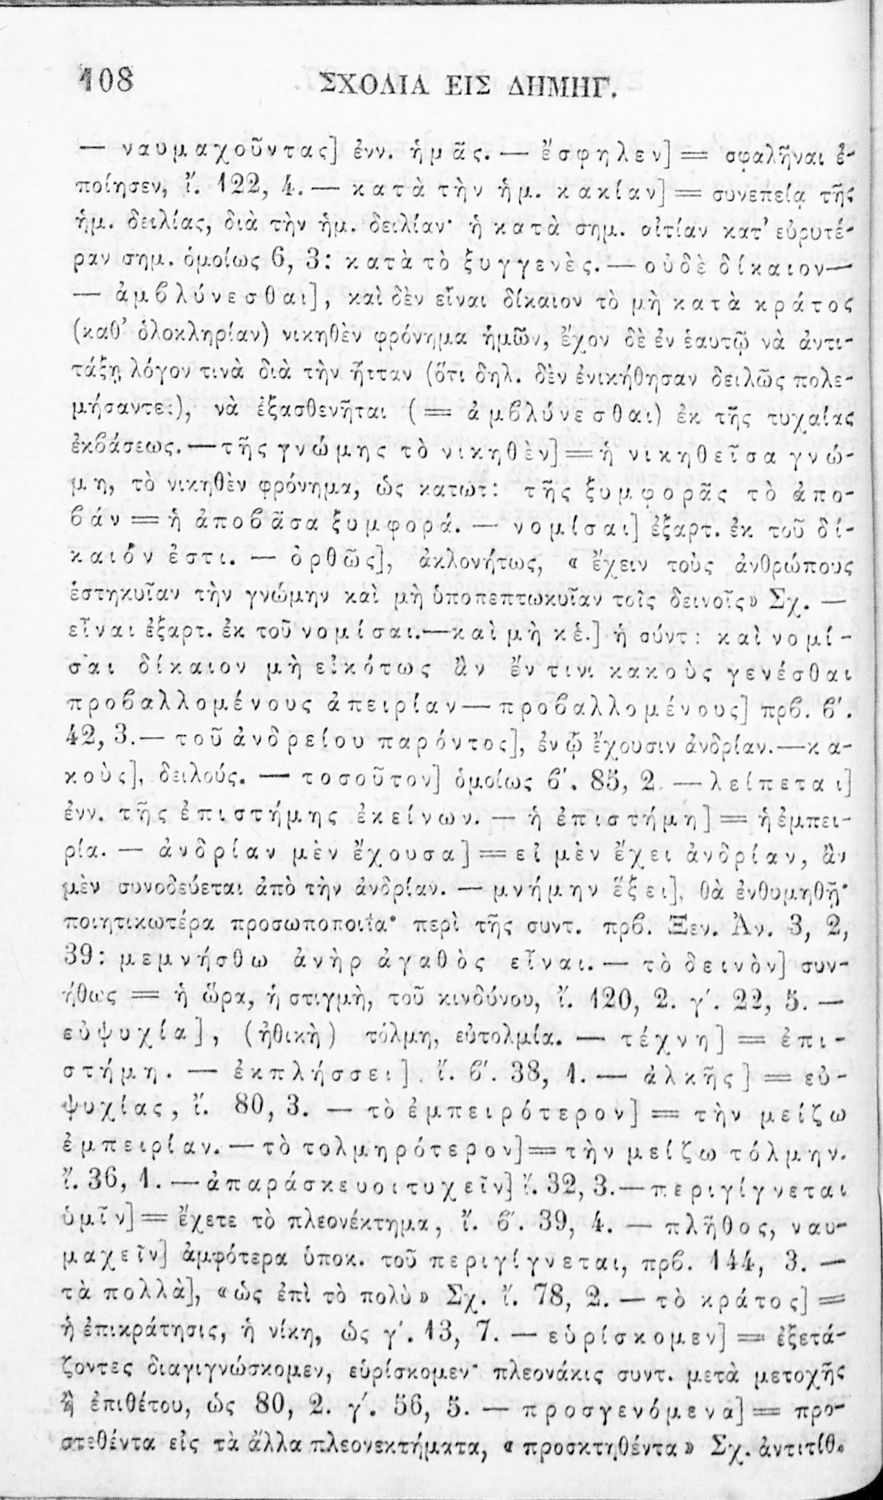 108 ΣΧΟΛΙΑ ΕΙΣ ΔΗΜΗΓ.
— ναυμαχοῦντας] ἐνν. ἡμᾶς. — ἔσφηλεν] = σφαλῆναι ἐ-
ποίησεν, ἴ. 122, 4. — κατὰ τὴν ἡμ. κακίαν] = συνεπείᾳ τῆς
ἡμ. δειλίας, διὰ τὴν ἡμ. δειλίαν· ἡ κατὰ σημ. αἰτίαν κατ' εὐρυτέ-
ραν σημ. ὁμοίως 6, 3: κατὰ τὸ ξυγγενὲς. — οὐδὲ δίκαιον —
— ἀμβλύνεσθαι], καὶ δὲν εἶναι δίκαιον τὸ μὴ κατὰ κράτος
(καθ' ὁλοκληρίαν) νικηθὲν φρόνημα ἡμῶν, ἔχον δὲ ἐν ἑαυτῷ νὰ ἀντι-
τάξῃ λόγον τινὰ διὰ τὴν ἧτταν (ὅτι δηλ. δὲν ἐνικήθησαν δειλῶς πολε-
μήσαντες), νὰ ἐξασθενῆται (= ἀμβλύνεσθαι) ἐκ τῆς τυχαίας
ἐκβάσεως. — τῆς γνώμης τὸ νικηθὲν] = ἡ νικηθεῖσα γνώ-
μη, τὸ νικηθὲν φρόνημα, ὡς κατωτ: τῆς ξυμφορᾶς τὸ ἀπο-
βάν = ἡ ἀποβᾶσα ξυμφορά. — νομίσαι] ἐξαρτ. ἐκ τοῦ δί-
καιόν ἐστι. — ὀρθῶς], ἀκλονήτως, « ἔχειν τοὺς ἀνθρώπους
ἑστηκυῖαν τὴν γνώμην καὶ μὴ ὑποπεπτωκυῖαν τοῖς δεινοῖς» Σχ. —
εἶναι ἐξαρτ. ἐκ τοῦ νομίσαι. — καὶ μὴ κἑ.] ἡ σύντ: καὶ νομί-
σαι δίκαιον μὴ εἰκότως ἂν ἔν τινι κακοὺς γενέσθαι
προβαλλομένους ἀπειρίαν — προβαλλομένους] πρβ. β'.
42, 3. — τοῦ ἀνδρείου παρόντος], ἐν ᾧ ἔχουσιν ἀνδρίαν. — κα-
κοὺς], δειλούς. — τοσοῦτον] ὁμοίως β'. 85, 2. — λείπεται]
ἐνν. τῆς ἐπιστήμης ἐκείνων. — ἡ ἐπιστήμη] = ἡ ἐμπει-
ρία. — ἀνδρίαν μὲν ἔχουσα] = εἰ μὲν ἔχει ἀνδρίαν, ἂν
μὲν συνοδεύεται ἀπὸ τὴν ἀνδρίαν. — μνήμην ἕξει], θὰ ἐνθυμηθῇ·
ποιητικωτέρα προσωποποιΐα· περὶ τῆς συντ. πρβ. Ξεν. Ἀν. 3, 2,
39: μεμνήσθω ἀνὴρ ἀγαθὸς εἶναι. — τὸ δεινὸν] συν-
ήθως = ἡ ὥρα, ἡ στιγμὴ, τοῦ κινδύνου, ἴ. 120, 2. γ'. 22, 5. —
εὐψυχία], (ἠθικὴ) τόλμη, εὐτολμία. — τέχνη] = ἐπι-
στήμη. — ἐκπλήσσει]. ἴ. β'. 38, 1. — ἀλκῆς] = εὐ-
ψυχίας, ἴ. 80, 3. — τὸ ἐμπειρότερον] = τὴν μείζω
ἐμπειρίαν. — τὸ τολμηρότερον] = τὴν μείζω τόλμην.
ἴ. 36, 1. — ἀπαράσκευοι τυχεῖν] ἴ. 32, 3. — περιγίγνεται
ὑμῖν] = ἔχετε τὸ πλεονέκτημα, ἴ. β'. 39, 4. — πλῆθος, ναυ-
μαχεῖν] ἀμφότερα ὑποκ. τοῦ περιγίγνεται, πρβ. 144, 3. —
τὰ πολλὰ], «ὡς ἐπὶ τὸ πολὺ» Σχ. ἴ. 78, 2. — τὸ κράτος] =
ἡ ἐπικράτησις, ἡ νίκη, ὡς γ'. 13, 7. — εὑρίσκομεν] = ἐξετά-
ζοντες διαγιγνώσκομεν, εὑρίσκομεν· πλεονάκις συντ. μετὰ μετοχῆς
ἢ ἐπιθέτου, ὡς 80, 2. γ'. 56, 5. — προσγενόμενα] = προ-
στεθέντα εἰς τὰ ἄλλα πλεονεκτήματα, « προσκτηθέντα » Σχ. ἀντιτίθ.